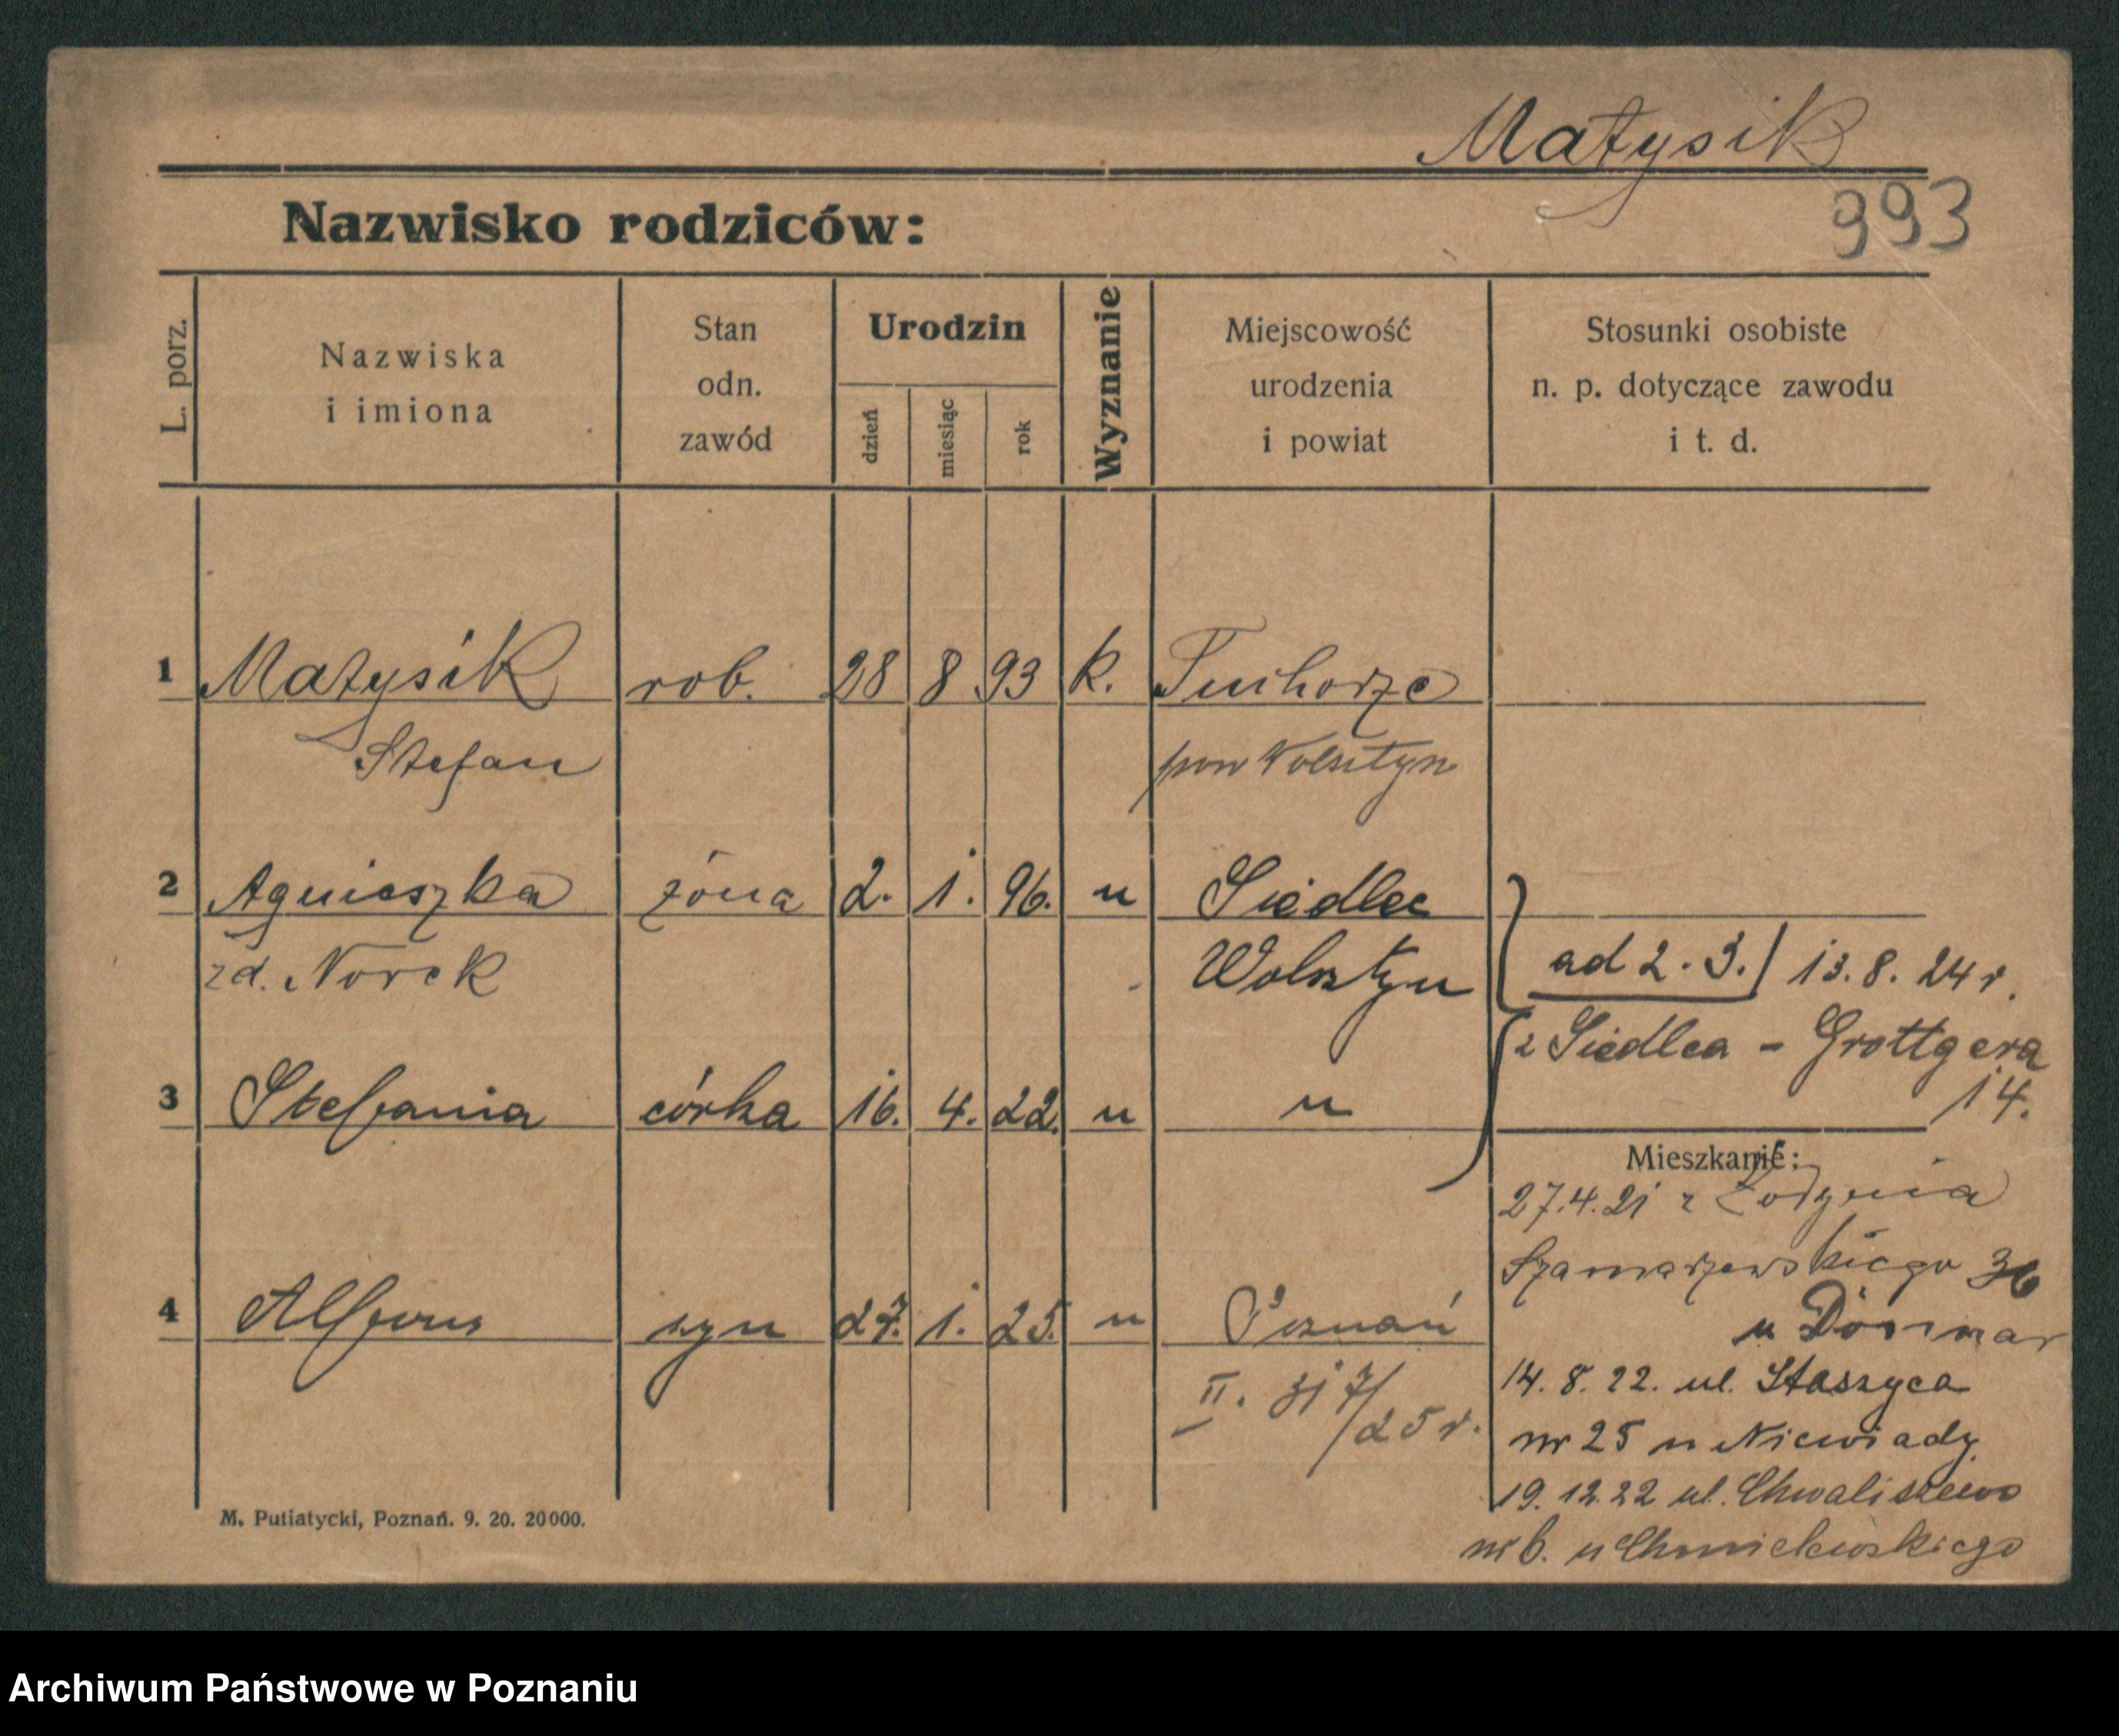 Matysik
993
Nazwisko rodziców:
L. porz.
Nazwiska
i imiona
Stan
odn.
zawód
Urodzin
dzień
miesiąc
rok
Wyznanie
Miejscowość
urodzenia
i powiat
Stosunki osobiste
n. p. dotyczące zawodu
i t. d.
1 Matysik rob. 28 8 93 k. Tuchorze
Stefan pow Wolsztyn
2 Agnieszka żona 2. 1. 96. " Siedlec
zd. Norek Wolsztyn
ad 2. 3. 13.8.24 r.
z Siedlca - Grottgera
14.
3 Stefania córka 16. 4. 22. " "
Mieszkanie:
27.4.21 z
Szamarzewskiego 36
u
4 Alfons syn 27. 1. 25. " Poznań
II. 31 7/25 r.
14. 8. 22. ul. Staszyca
nr 25 u Niewiady
19. 12. 22 ul. Chwaliszewo
nr 6. u Chmielewskiego
M. Putiatycki, Poznań. 9. 20. 20000.
Archiwum Państwowe w Poznaniu